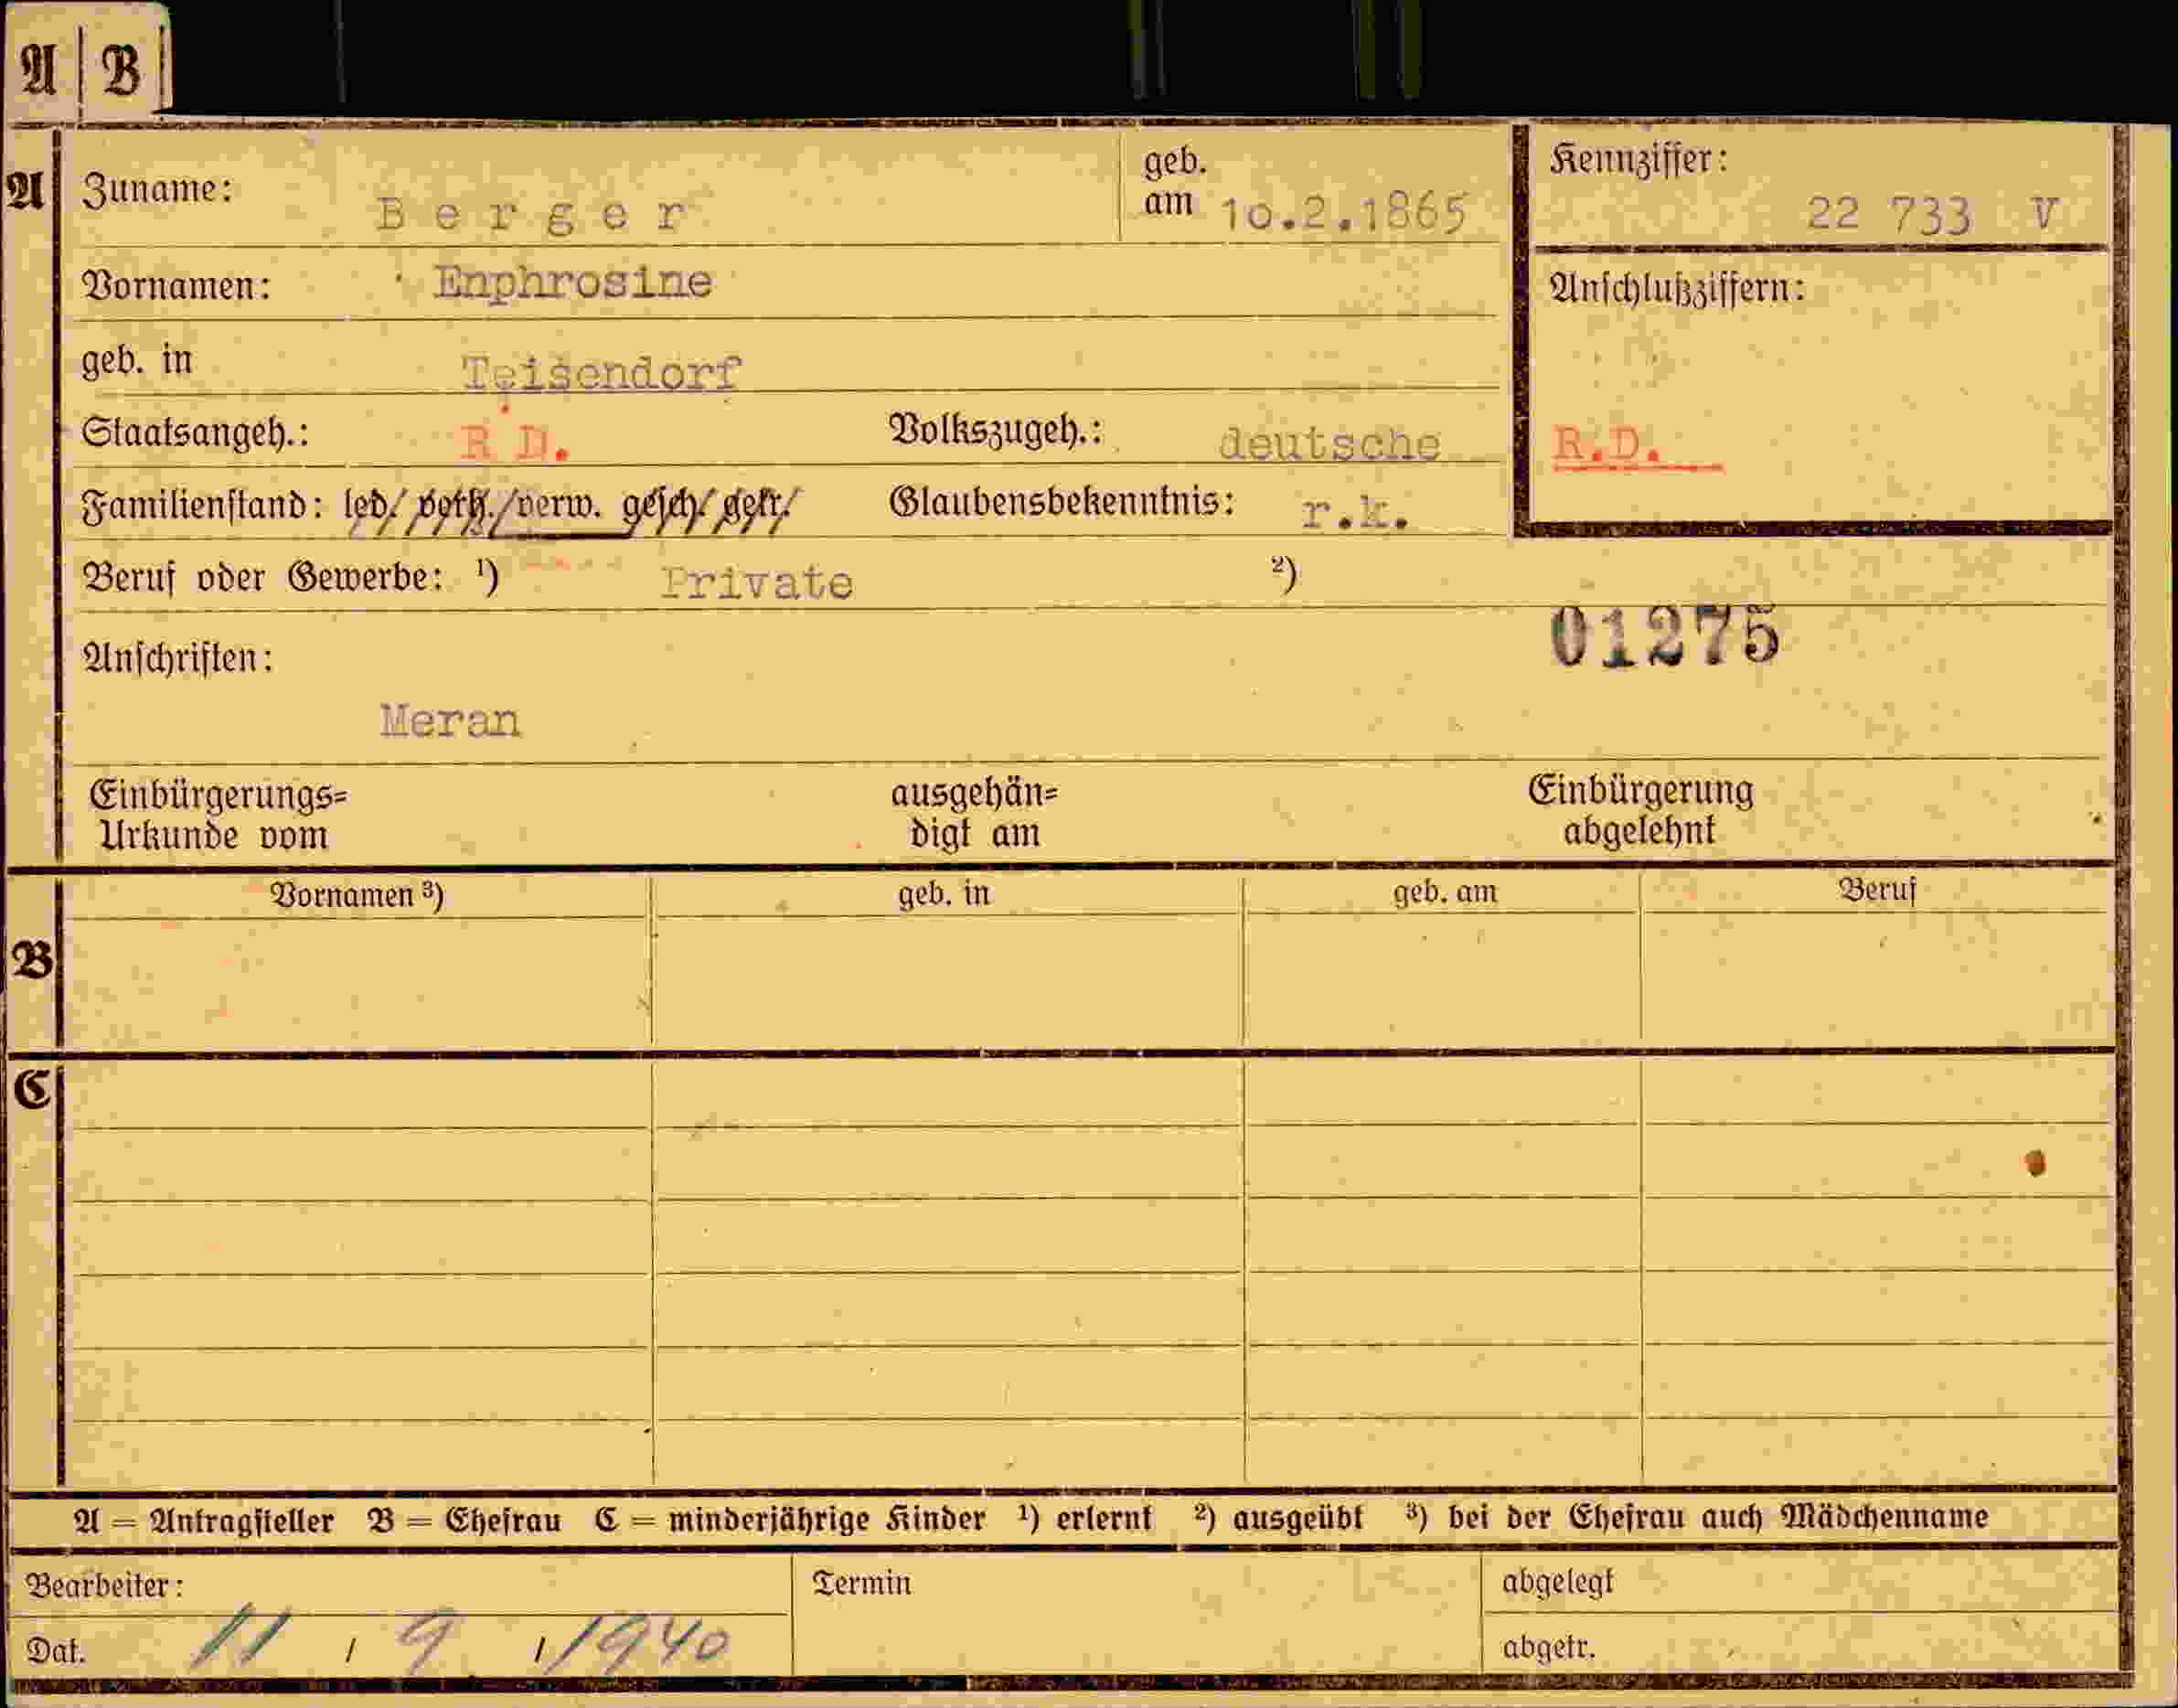 A B
A Zuname: Berger geb. am 10.2.1865 Kennziffer: 22 733 V
Vornamen: Enphrosine Anschlußziffern:
geb. in Teisendorf
Staatsangeh.: R D. Volkszugeh.: deutsche R.D.
Familienstand: led/ verh./verw. gesch/ getr/ Glaubensbekenntnis: r.k.
Beruf oder Gewerbe: ¹) Private ²)
01275
Anschriften:
Meran
Einbürgerungs=
Urkunde vom
ausgehän=
digt am
Einbürgerung
abgelehnt
Vornamen ³) geb. in geb. am Beruf
B
C
A = Antragsteller B = Ehefrau C = minderjährige Kinder ¹) erlernt ²) ausgeübt ³) bei der Ehefrau auch Mädchenname
Bearbeiter: Termin abgelegt
Dat. 11 / 9 / 1940 abgetr.